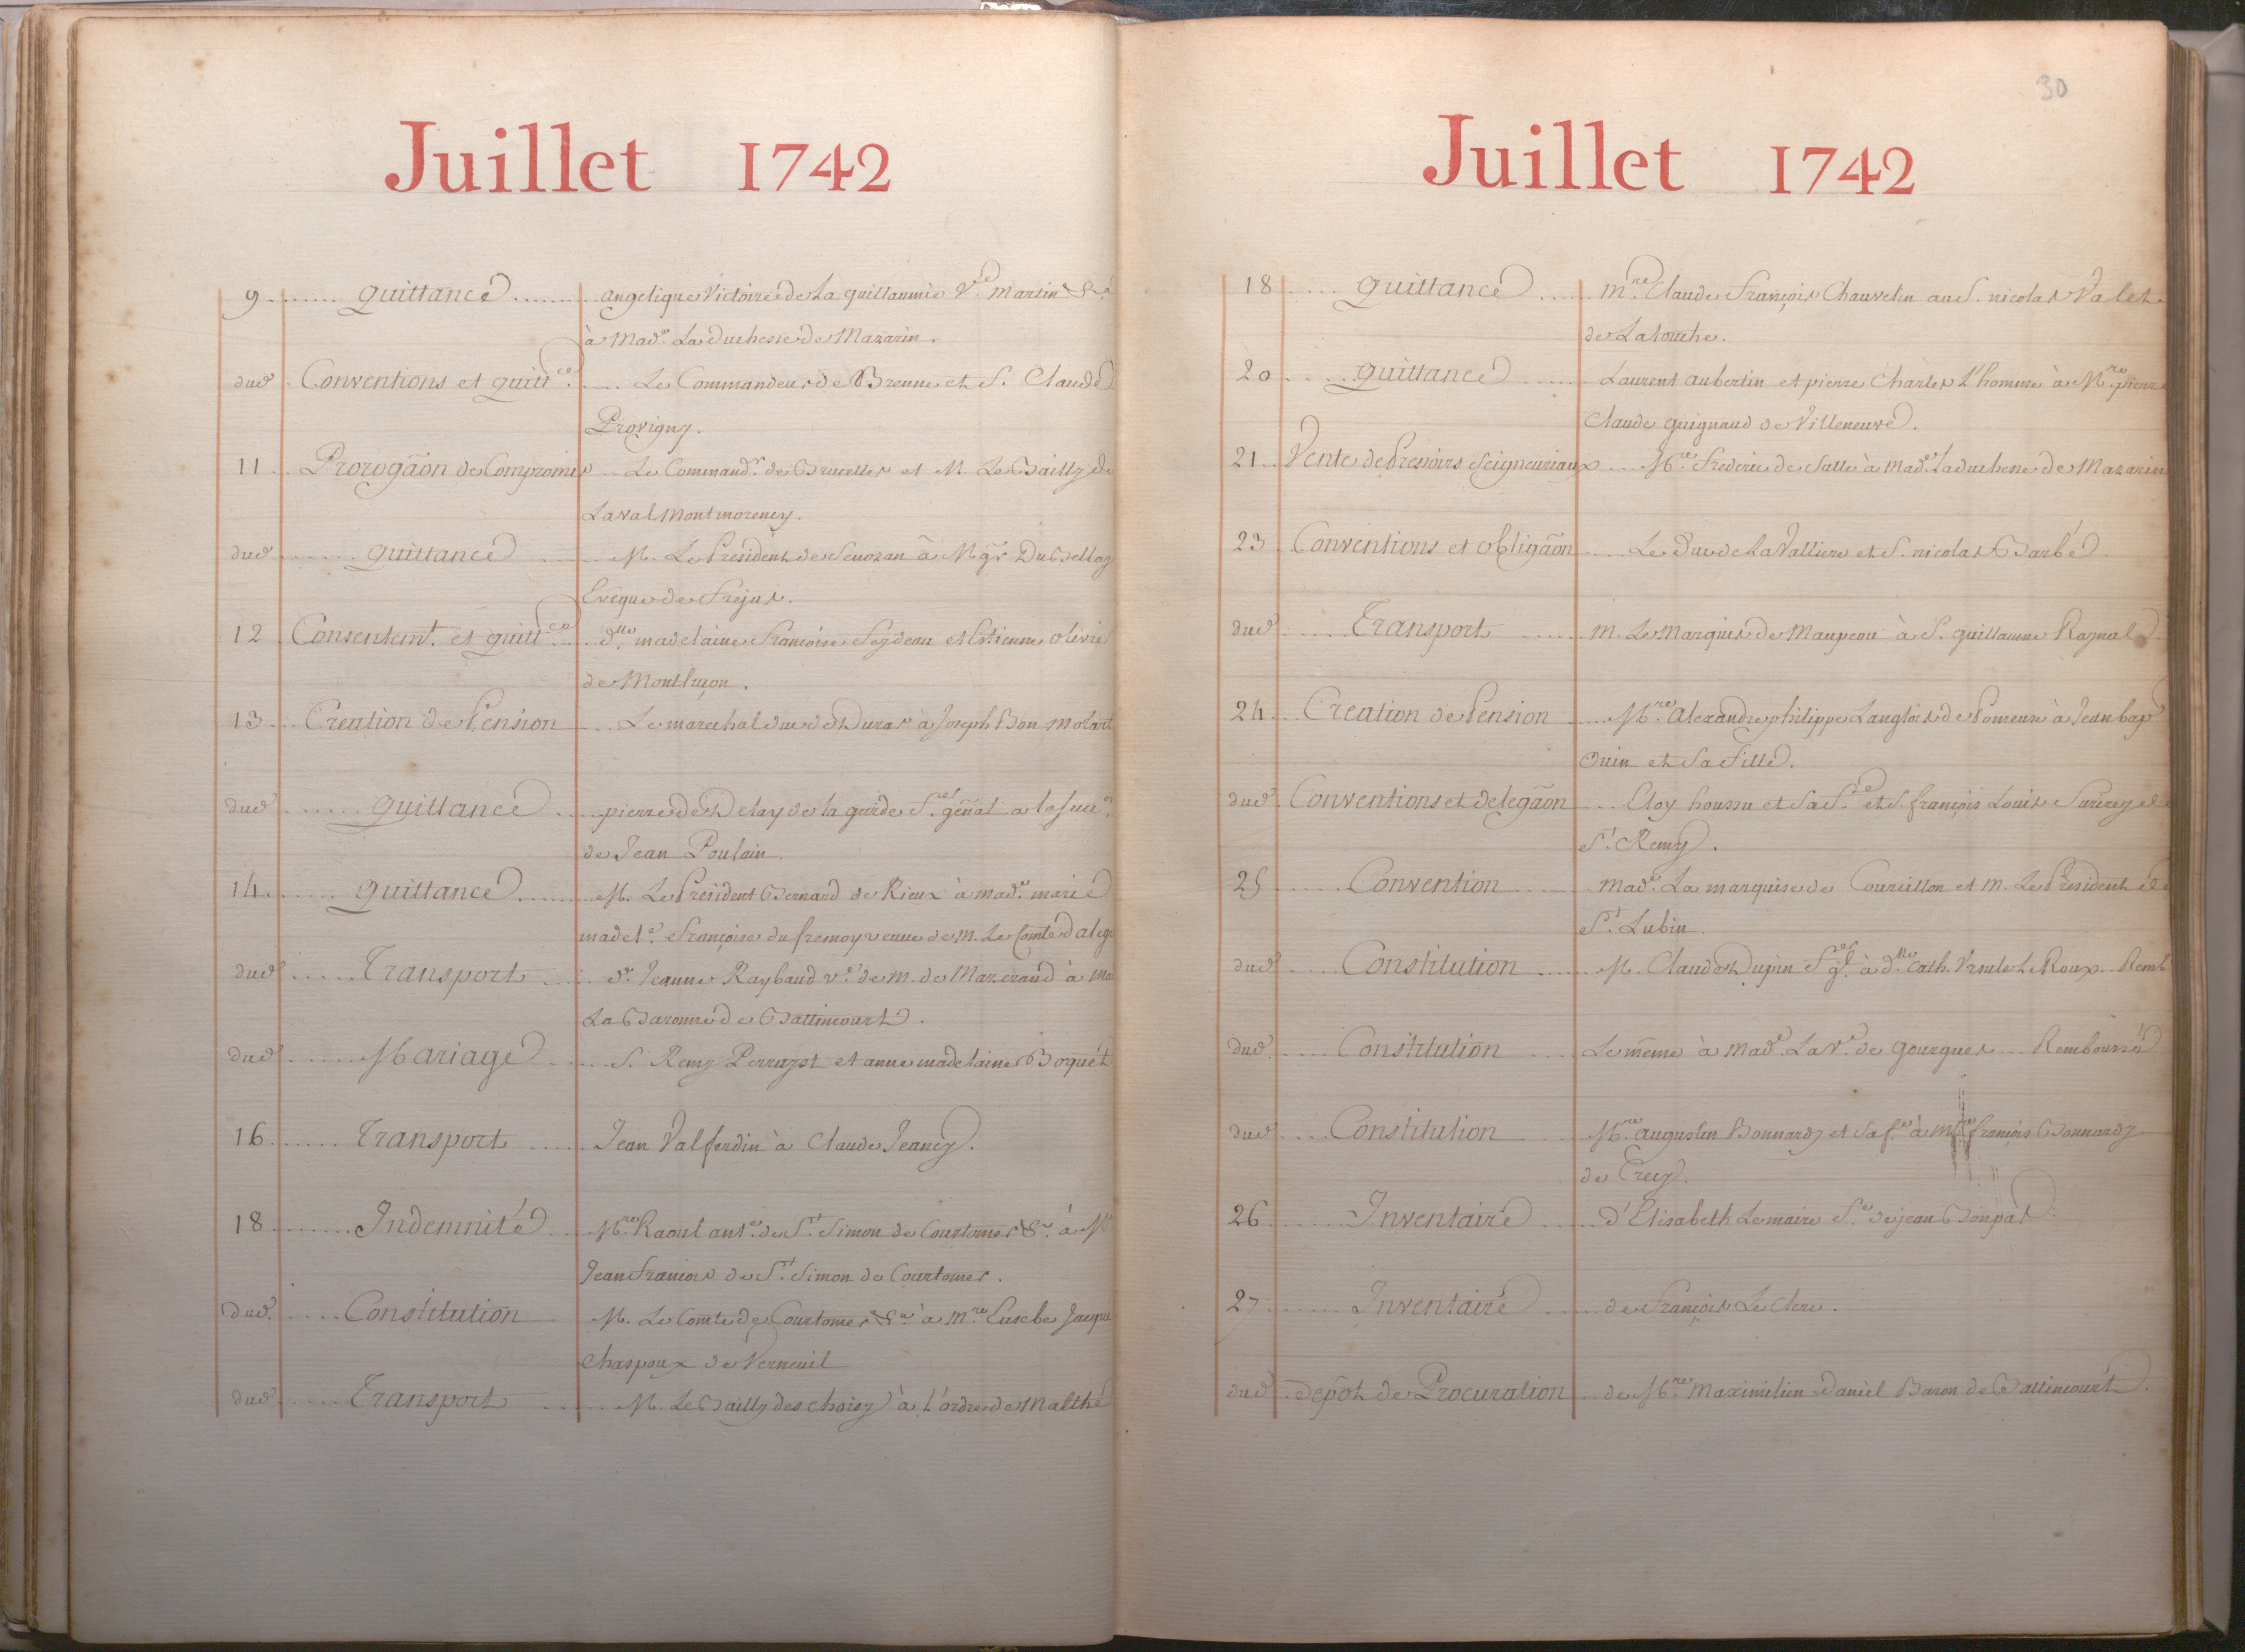 Juillet 1742
9 quittance angelique Victoire de La guillaumie V.e Martin &.a
à Mad.e La duchesse de Mazarin.
dud. Conventions et quitt.ce Le Commandeur de Brenne et S. Claude
Provigny.
11 Prorogãon de Compromis Le Command.r de Bruelles et M. Le Bailly de
Laval Montmorency.
dud. quittance M. Le Président de Senozan à Mgr Du Bellay
Evêque de Frejus.
12 Consentem.t et quitt.ce d.lle madelaine Françoise Feydeau et Estienne olivie
de Montluçon.
13 Creation de Pension Le marechal duc de Duras à Joseph Bon Molart
dud. quittance pierre de Delay de la garde S.r gẽnal a la succ.on
de Jean Poulain.
14 quittance M. Le President Bernard de Rieux à mad.e marie
madel.e Françoise du fremoy veuve de m. Le Comte d'aleg
dud. Transport d.e Jeanne Raybaud v.e de m. de Mazerand à Ma
La Baronne de Battincourt.
dud. Mariage S. Remy Perruzot et anne madelaine Boquet
16 Transport Jean Valferdin à Claude Jeancy.
18 Indemnité M.re Raoul ant.e de S.t Simon de Courtomer &.a à M
Jean François de S.t Simon de Courtomer.
dud. Constitution M. Le Comte de Courtomer &.a à M.re Eusebe Jacque
Chaspoux de Verneuil
dud. Transport M. Le Bailly de choisy à l'ordre de Malthe
30
Juillet 1742
18 quittance M.re Claude François Chauvelin au S. nicolas Valet
de Latouche.
20 quittance Laurent aubertin et pierre Charles L'homme à M.re pierre
Claude guignaud de Villeneuve.
21 Vente de Pressoirs Seigneuriaux M.re Frederic de Salle à Mad.e La duchesse de Mazarin
23 Conventions et obligãon Le Duc de La Valliere et S. nicolas Barbé.
dud. Transport M. Le Marquis de Maupeou à S. guillaume Raynal
24 Creation de Pension M.re alexandre philippe Langlois de Pomeuse à Jean bap.
Ouin et Sa fille.
dud. Conventions et delegãon Eloy houssu et sa f.e et S. françois Louis Sarirey de
S.t Remy.
25 Convention Mad.e La marquise de Courcillon et M. Le Président de
S.t Lubin.
dud. Constitution M. Claude Dupin f.er g.l à d.lle Cath. Ursule Le Roux Remb.
dud. Constitution Le même à Mad.e La V.e de gourgues Remboursé
dud. Constitution M.re augustin Bonnardy et sa f.e à M.re françois Bonnardy
de Crecy.
26 Inventaire d'Elisabeth Lemaire f.e de jean Bonpat.
27 Inventaire de François Le Clerc.
dud. depôt de Procuration de M.re Maximilien Daniel Baron de Battincourt.